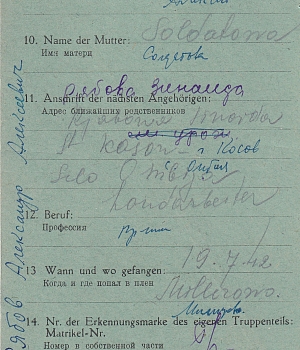 Алексей
10. Name der Mutter: Soldatowa
Имя матери Солдатова
Рябова Зинаида
11. Anschrift der nächsten Angehörigen:
Адрес ближайших родственников
St. Kosow – г. Косов
Selo
12. Beruf: Landarbeiter
Профессия
13 Wann und wo gefangen: 19.7.42
Когда и где попал в плен Millerowo
14. Nr. der Erkennungsmarke des eigenen Truppenteils:
Matrikel-Nr.
Номер в собственной части
Рябов Александр Алексеевич